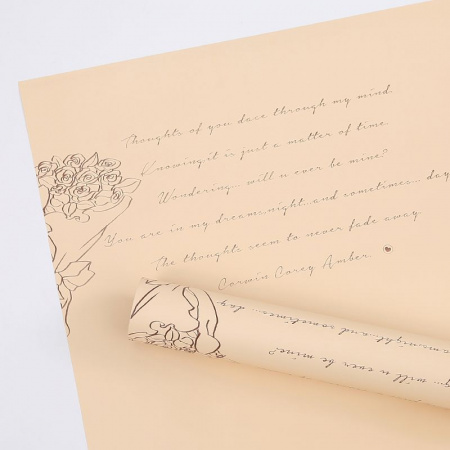 Thoughts of you dace through my mind
Knowing it is just a matter of time
Wondering... will u ever be mine?
You are in my dreams.night...and sometimes... day
The thoughts seem to never fade away
Corwin Corey Amber
and sometimes... day
will u ever be mine?